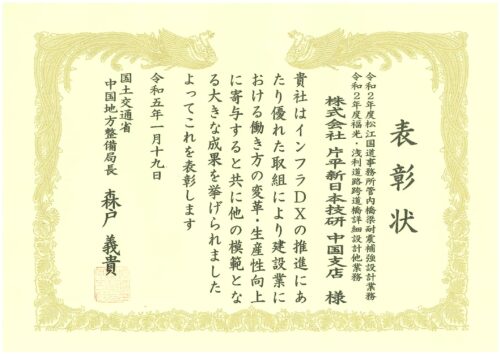 表彰状
令和２年度松江国道事務所管内橋梁耐震補強設計業務
令和２年度福光・浅利道路跨道橋詳細設計他業務
株式会社 片平新日本技研 中国支店 様
貴社はインフラＤＸの推進にあ
たり優れた取組により建設業に
おける働き方の変革・生産性向上
に寄与すると共に他の模範とな
る大きな成果を挙げられました
よってこれを表彰します
令和五年一月十九日
国土交通省
中国地方整備局長
森戸 義貴